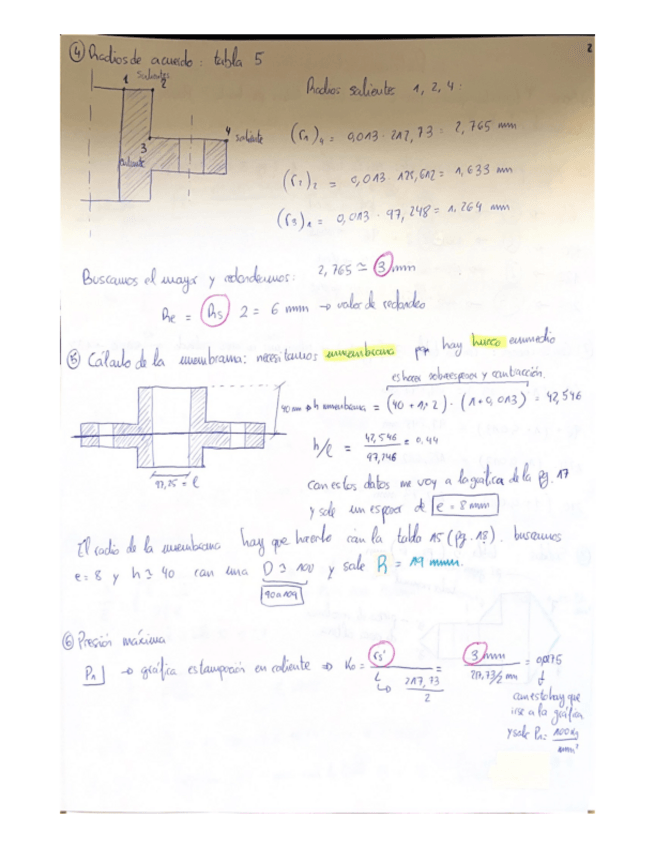 2
④ Radios de acuerdo: tabla 5
salientes
1 2
3
4 saliente
Radios salientes 1, 2, 4:
(r₁)₄ = 0,013 · 212,73 = 2,765 mm
(r₂)₂ = 0,013 · 125,612 = 1,633 mm
= 0,013 · 97,248 = 1,264 mm
Buscamos el mayor y redondeamos: 2,765 ≃ 3 mm
Re = Rs 2 = 6 mm → valor de redondeo
⑤ Cálculo de la membrana: necesitamos membrana pq hay hueco enmedio
sobreespesor y contracción
40 mm → h membrana = (40 + 1 · 2) · (1 + 0,013) = 42,546
h/l = 42,546 / 97,246 = 0,44
97,25 = l
con estos datos me voy a la gráfica de la pg. 17
y sale un espesor de e = 8 mm
El radio de la membrana hay que hacerlo con la tabla 15 (pg. 18). buscamos
e = 8 y h ≃ 40 con una D ≃ 100 y sale R = 19 mm.
⑥ Presión máxima
→ gráfica estampación en caliente ⇒ K₀ = rs' / L = 3 mm / = 0,0175
217,73 / 2
con esto hay que
irse a la gráfica
y sale P₁ = 100 kg / mm²